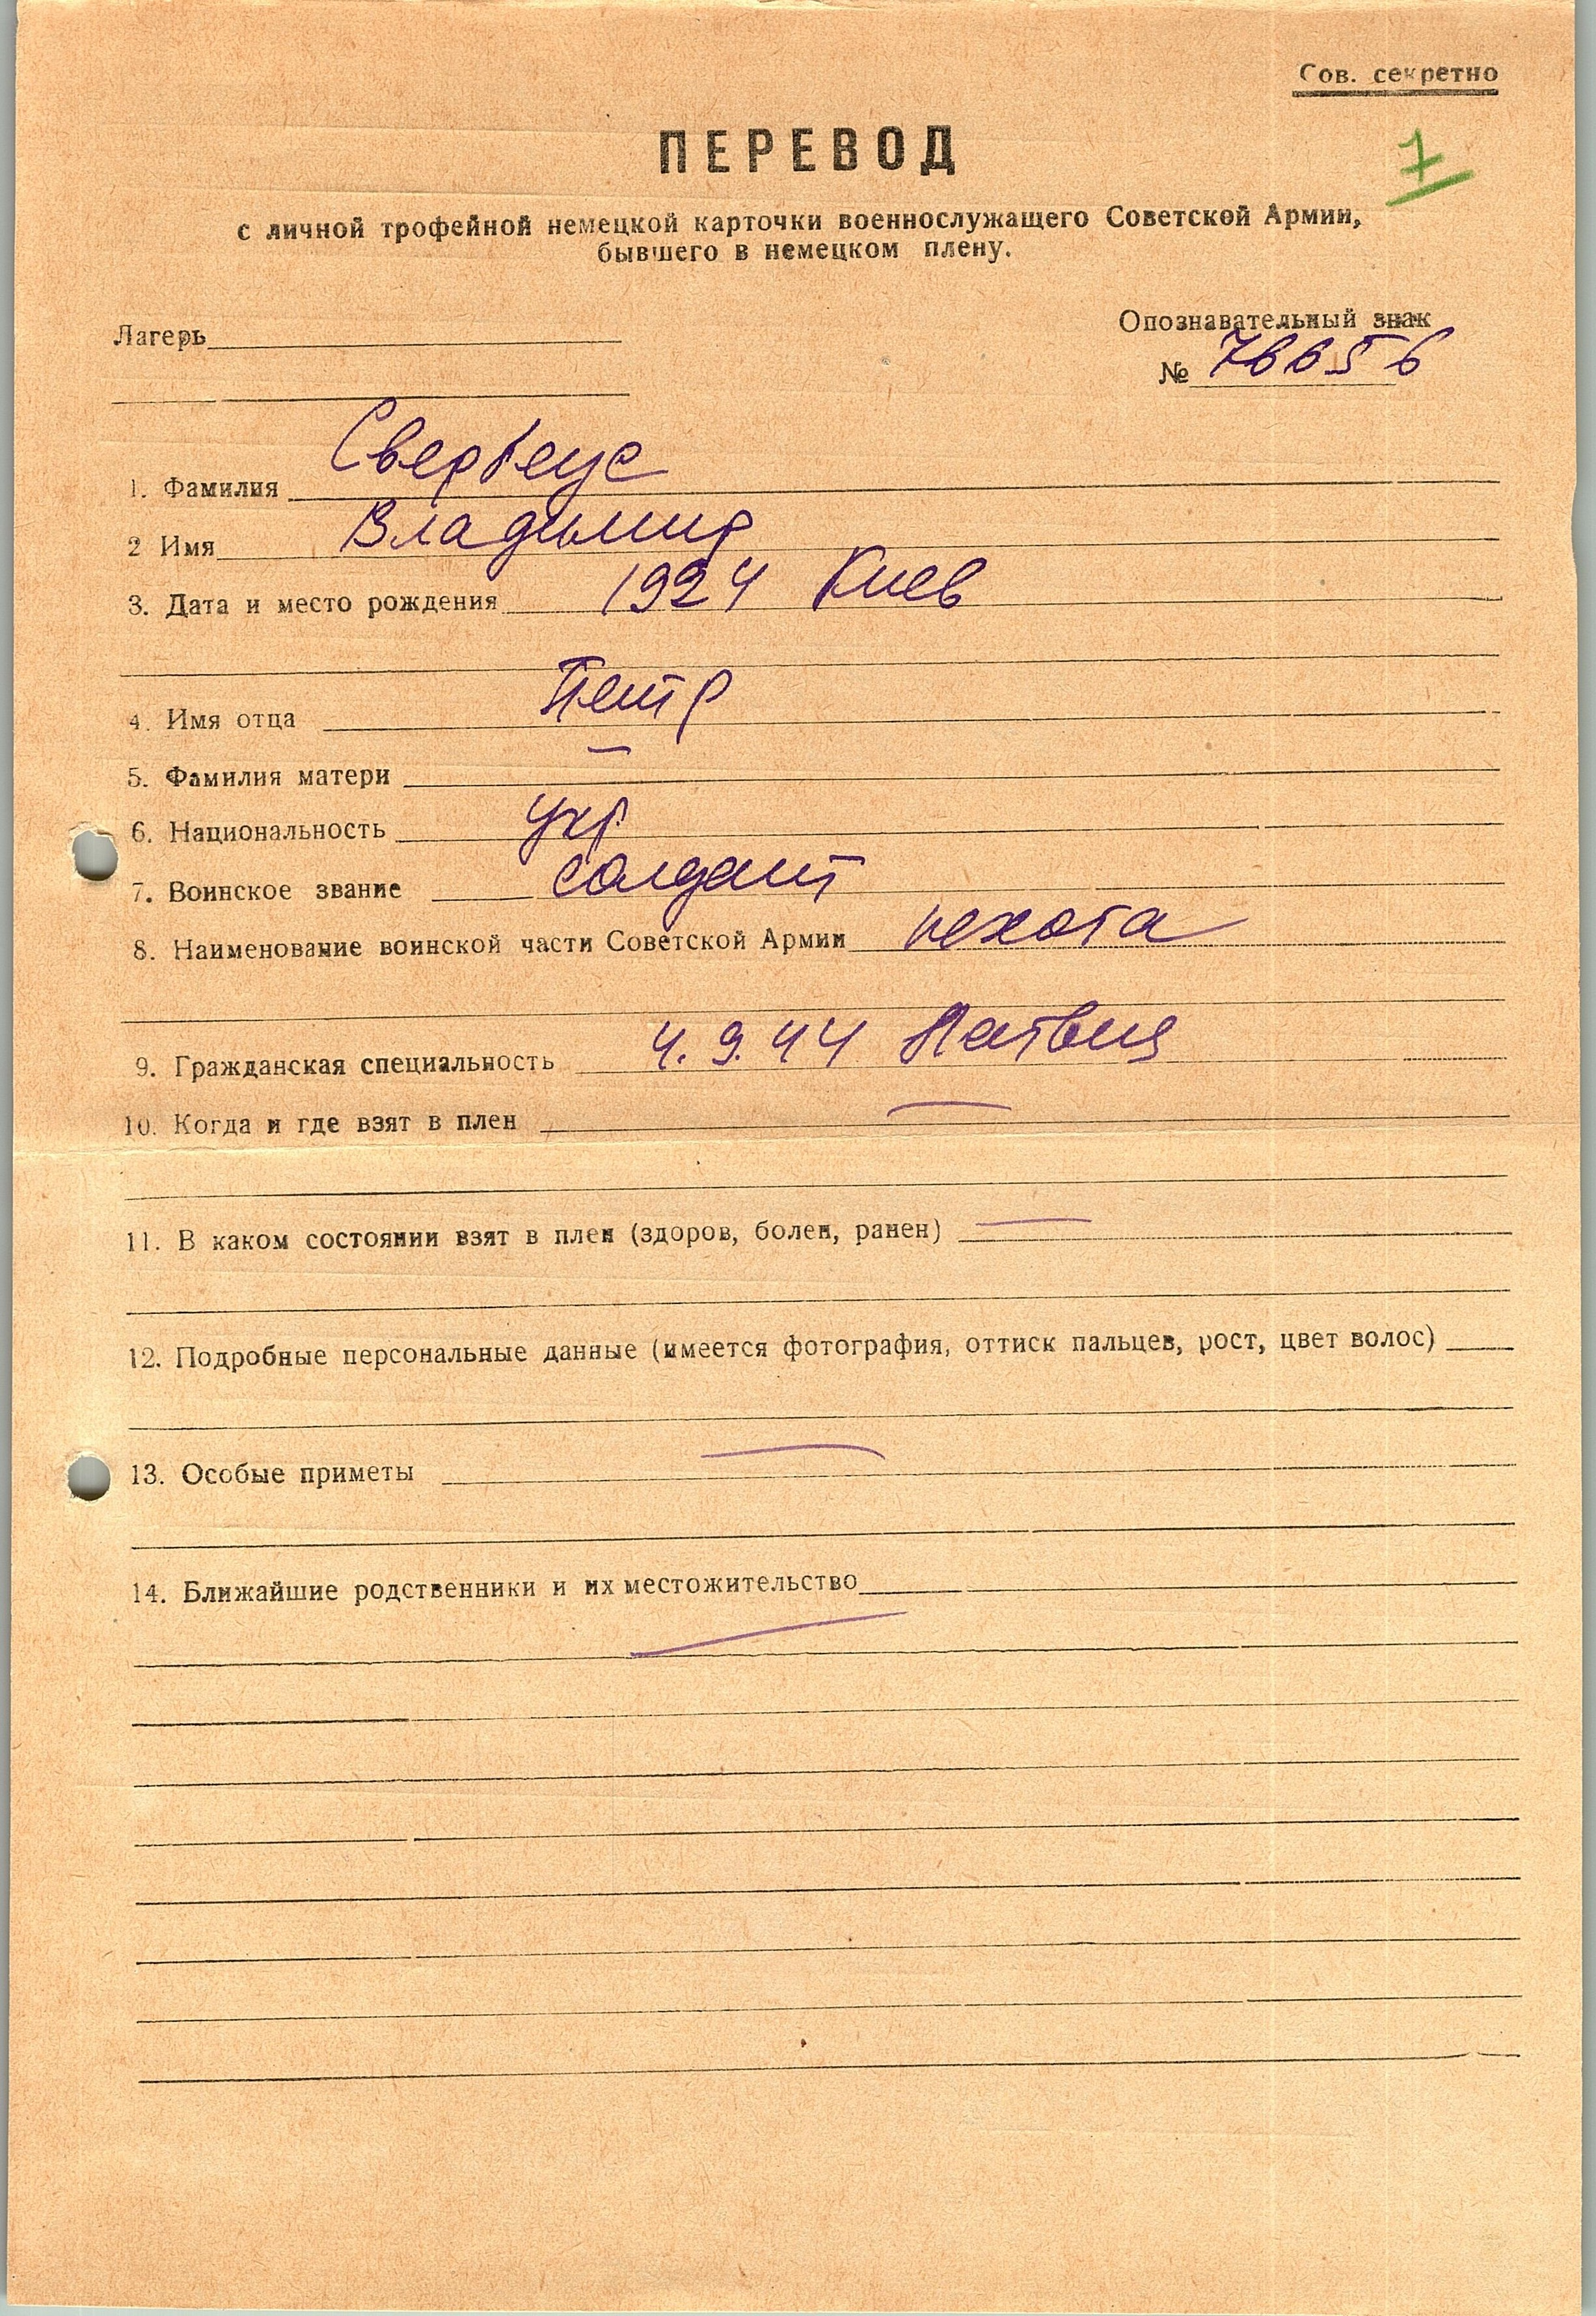 Сов. секретно
7
ПЕРЕВОД
с личной трофейной немецкой карточки военнослужащего Советской Армии,
бывшего в немецком плену.
Лагерь
Опознавательный знак
№ 76656
1. Фамилия
2 Имя Владимир
3. Дата и место рождения 1924 Киев
4. Имя отца Петр
5. Фамилия матери —
6. Национальность укр
7. Воинское звание солдат
8. Наименование воинской части Советской Армии пехота
9. Гражданская специальность 4.9.44 Латвия
10. Когда и где взят в плен —
11. В каком состоянии взят в плен (здоров, болен, ранен) —
12. Подробные персональные данные (имеется фотография, оттиск пальцев, рост, цвет волос)
13. Особые приметы —
14. Ближайшие родственники и их местожительство
—